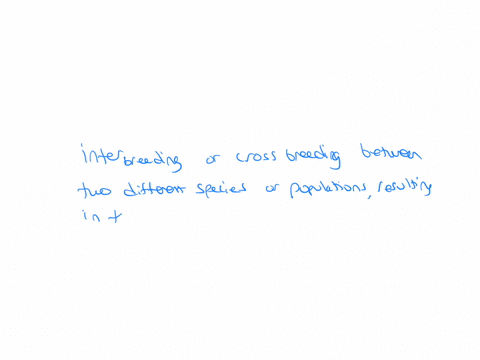 interbreeding or cross breeding between
two different species or populations, resulting
in t